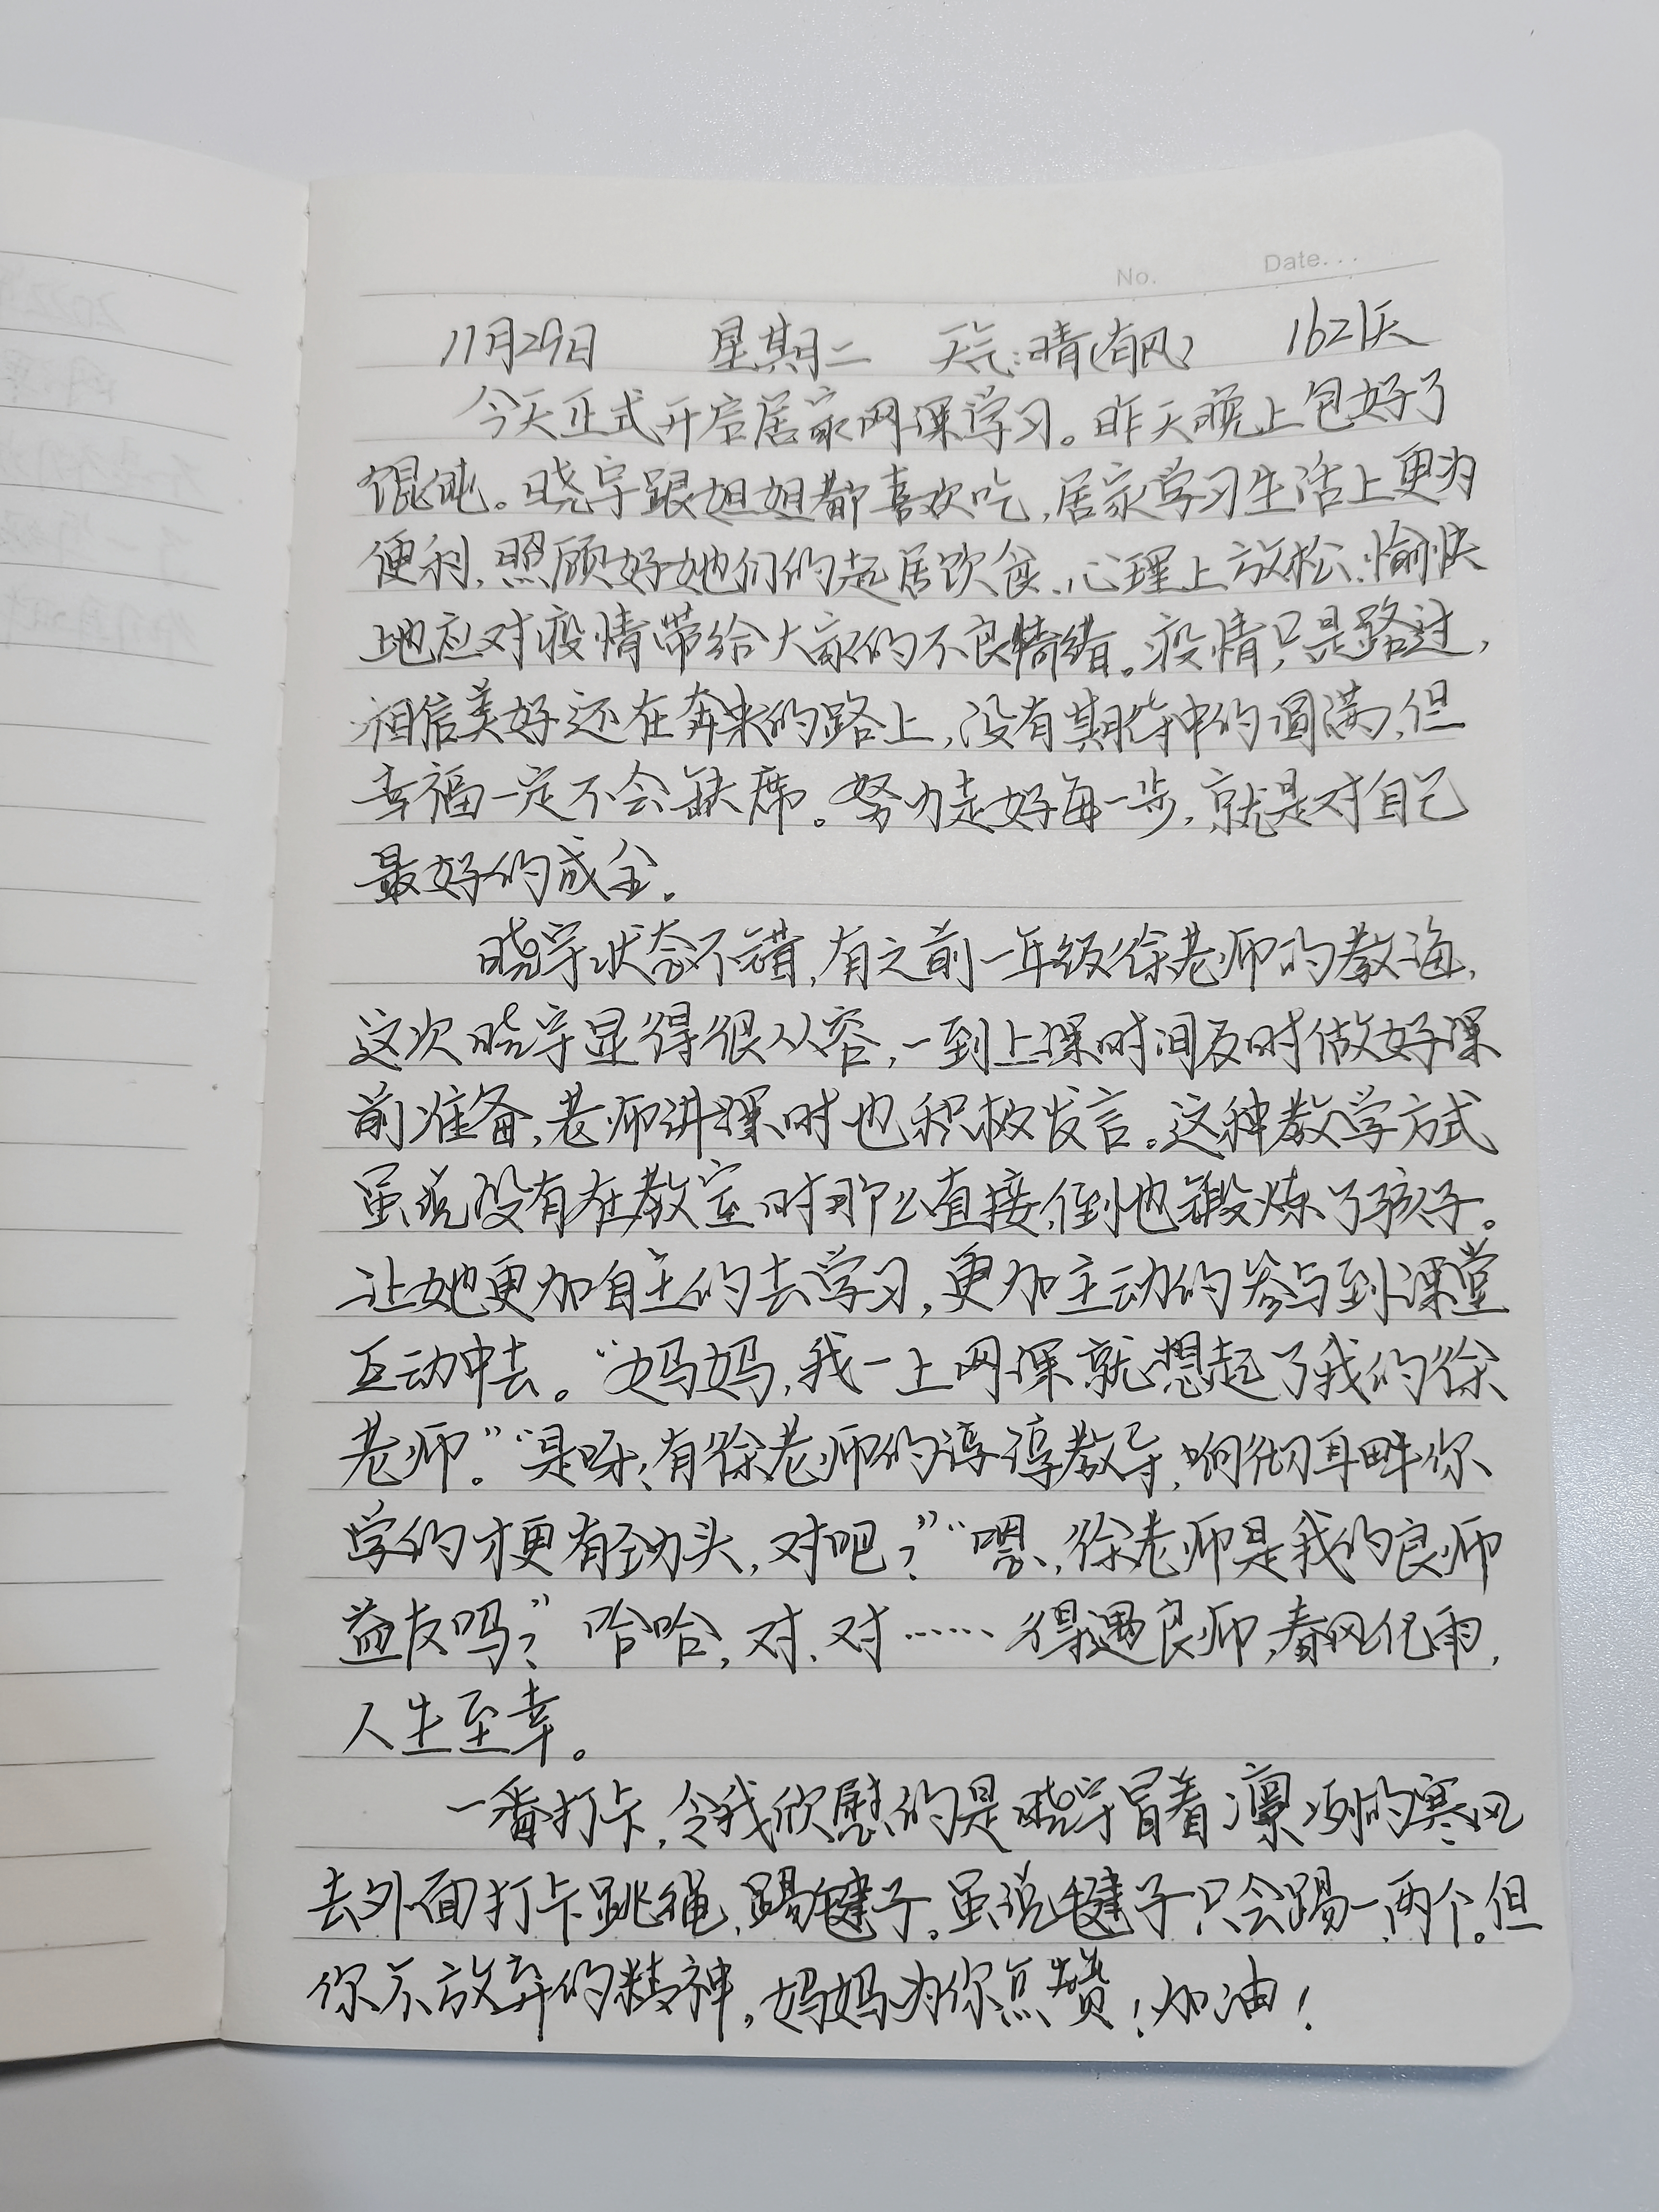 No.        Date...
11月29日  星期二  天气:晴(有风)  1621天
今天正式开启居家网课学习。昨天晚上包好了
馄饨。晓宇跟姐姐都喜欢吃,居家学习生活上更为
便利,照顾好她们的起居饮食、心理上放松、愉快
地应对疫情带给大家的不良情绪。疫情只是路过,
相信美好还在奔来的路上,没有期待中的圆满,但
幸福一定不会缺席。努力走好每一步,就是对自己
最好的成全。
晓宇状态不错,有之前一年级徐老师的教诲,
这次晓宇显得很从容,一到上课时间及时做好课
前准备,老师讲课时也积极发言。这种教学方式
虽说没有在教室时那么直接,倒也锻炼了孩子。
让她更加自主的去学习,更加主动的参与到课堂
互动中去。“妈妈,我一上网课就想起了我的徐
老师。”“是呀,有徐老师的谆谆教导,响彻耳畔你
学的才更有劲头,对吧?”“嗯,徐老师是我的良师
益友吗?”哈哈,对、对……得遇良师,春风化雨,
人生至幸。
一番打卡,令我欣慰的是晓宇冒着凛冽的寒风
去外面打卡跳绳、踢毽子。虽说毽子只会踢一、两个。但
你不放弃的精神,妈妈为你点赞!加油!